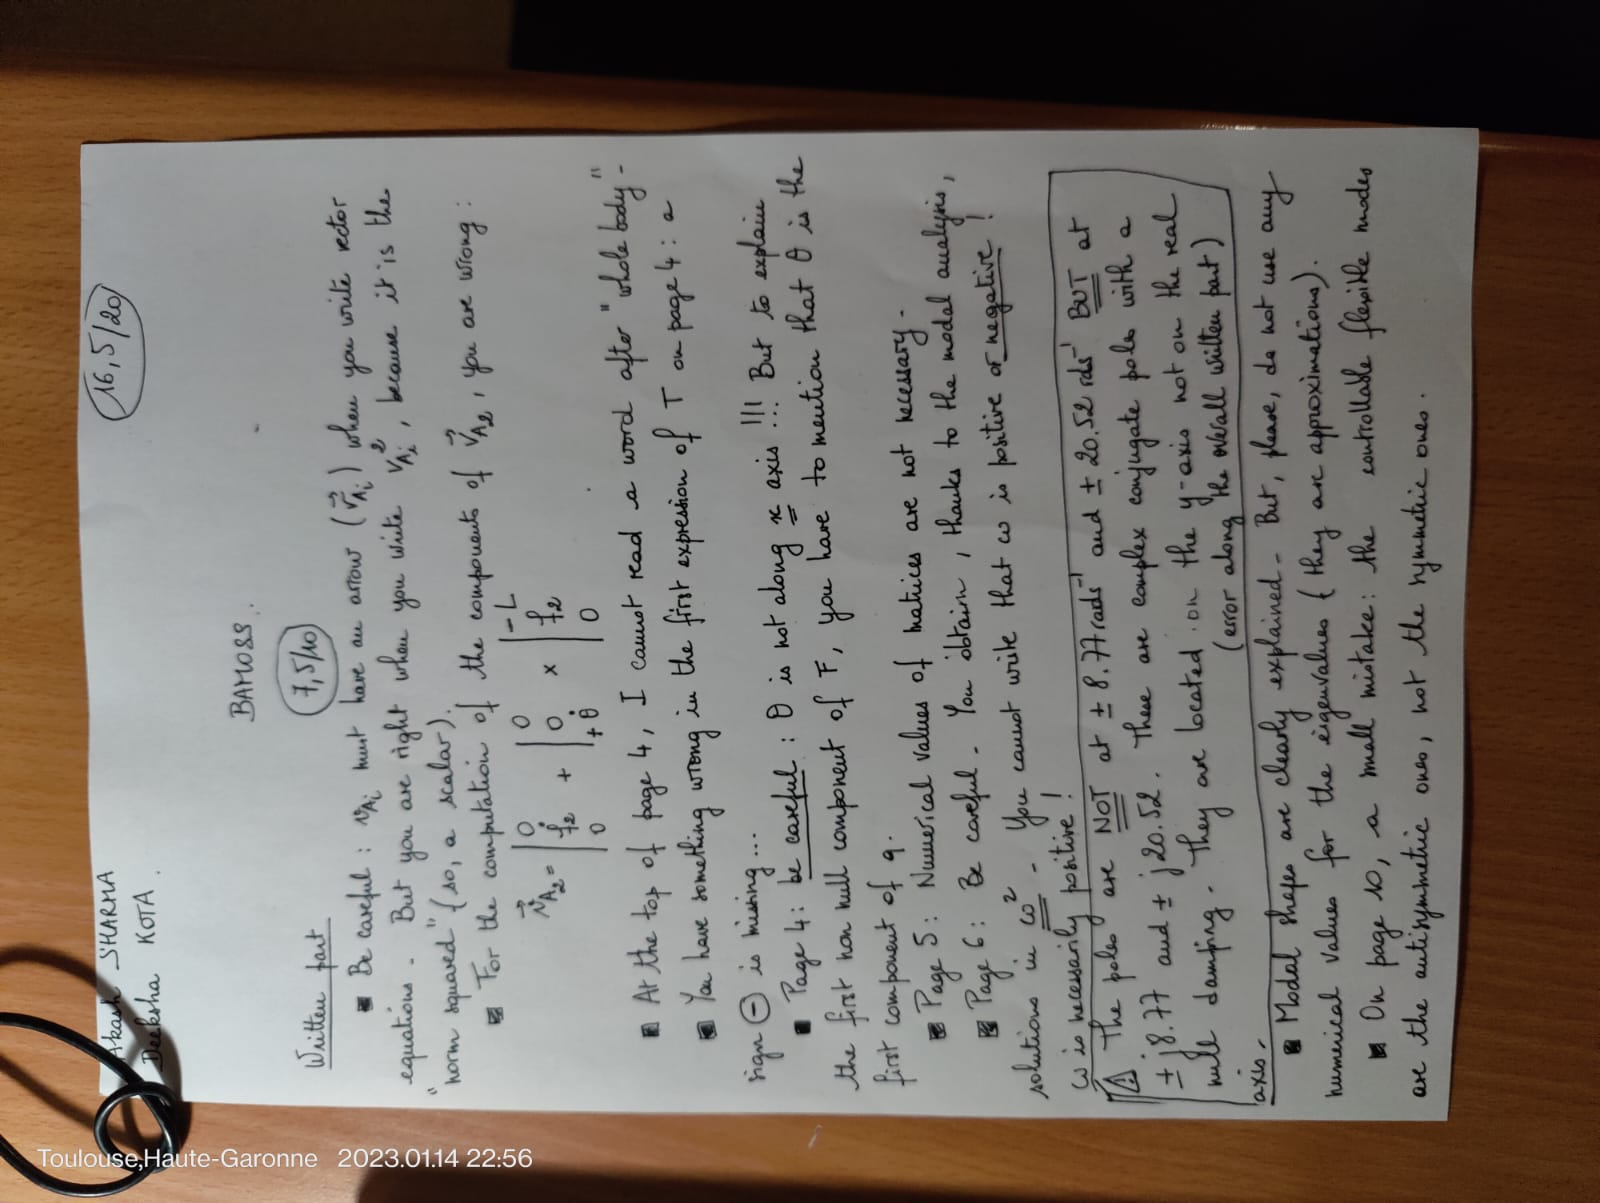 Akash SHARMA
Deeksha KOTA
16,5/20
BAMOSS.
7,5/10
Written part
▪ Be careful : v_Ai must have an arrow (v⃗_Ai) when you write vector
equations. But you are right when you write v_Ai², because it is the
"norm squared" (so, a scalar).
▪ For the computation of the components of v⃗_A2, you are wrong :
v⃗_A2 = | 0 ḟ2 0 + | 0 0 +θ̇ × | -L f2 0
▪ At the top of page 4, I cannot read a word after "whole body".
▪ You have something wrong in the first expression of T on page 4 : a
sign ⊖ is missing...
▪ Page 4 : be careful : θ is not along x axis !!! But to explain
the first non null component of F, you have to mention that θ is the
first component of q.
▪ Page 5 : Numerical values of matrices are not necessary.
▪ Page 6 : Be careful. You obtain, thanks to the modal analysis,
solutions in ω². You cannot write that ω is positive or negative !
ω is necessarily positive !
⚠ The poles are NOT at ± 8.77 rads⁻¹ and ± 20.52 rds⁻¹ BUT at
± j8.77 and ± j20.52. These are complex conjugate poles with a
null damping. They are located on the y-axis not on the real
axis. (error along the overall written part)
▪ Modal shapes are clearly explained. But, please, do not use any
numerical values for the eigenvalues (they are approximations).
▪ On page 10, a small mistake : the controllable flexible modes
are the antisymmetric ones, not the symmetric ones.
Toulouse,Haute-Garonne 2023.01.14 22:56